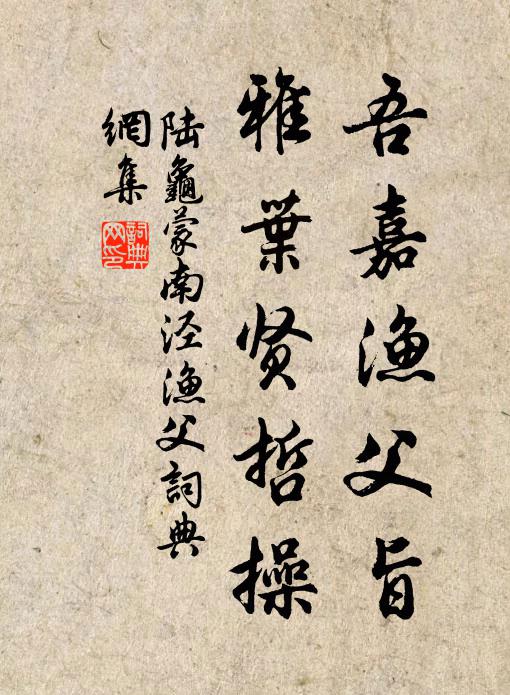 吾嘉渔父旨
雅葉贤哲操
陆龜蒙南泾渔父詞典
網集
詞典网印